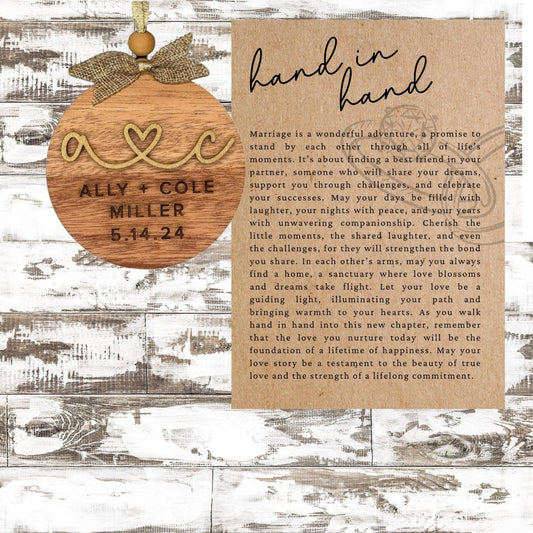 a c
ALLY + COLE
MILLER
5.14.24
hand in
hand
Marriage is a wonderful adventure, a promise to
stand by each other through all of life's
moments. It's about finding a best friend in your
partner, someone who will share your dreams,
support you through challenges, and celebrate
your successes. May your days be filled with
laughter, your nights with peace, and your years
with unwavering companionship. Cherish the
little moments, the shared laughter, and even
the challenges, for they will strengthen the bond
you share. In each other's arms, may you always
find a home, a sanctuary where love blossoms
and dreams take flight. Let your love be a
guiding light, illuminating your path and
bringing warmth to your hearts. As you walk
hand in hand into this new chapter, remember
that the love you nurture today will be the
foundation of a lifetime of happiness. May your
love story be a testament to the beauty of true
love and the strength of a lifelong commitment.